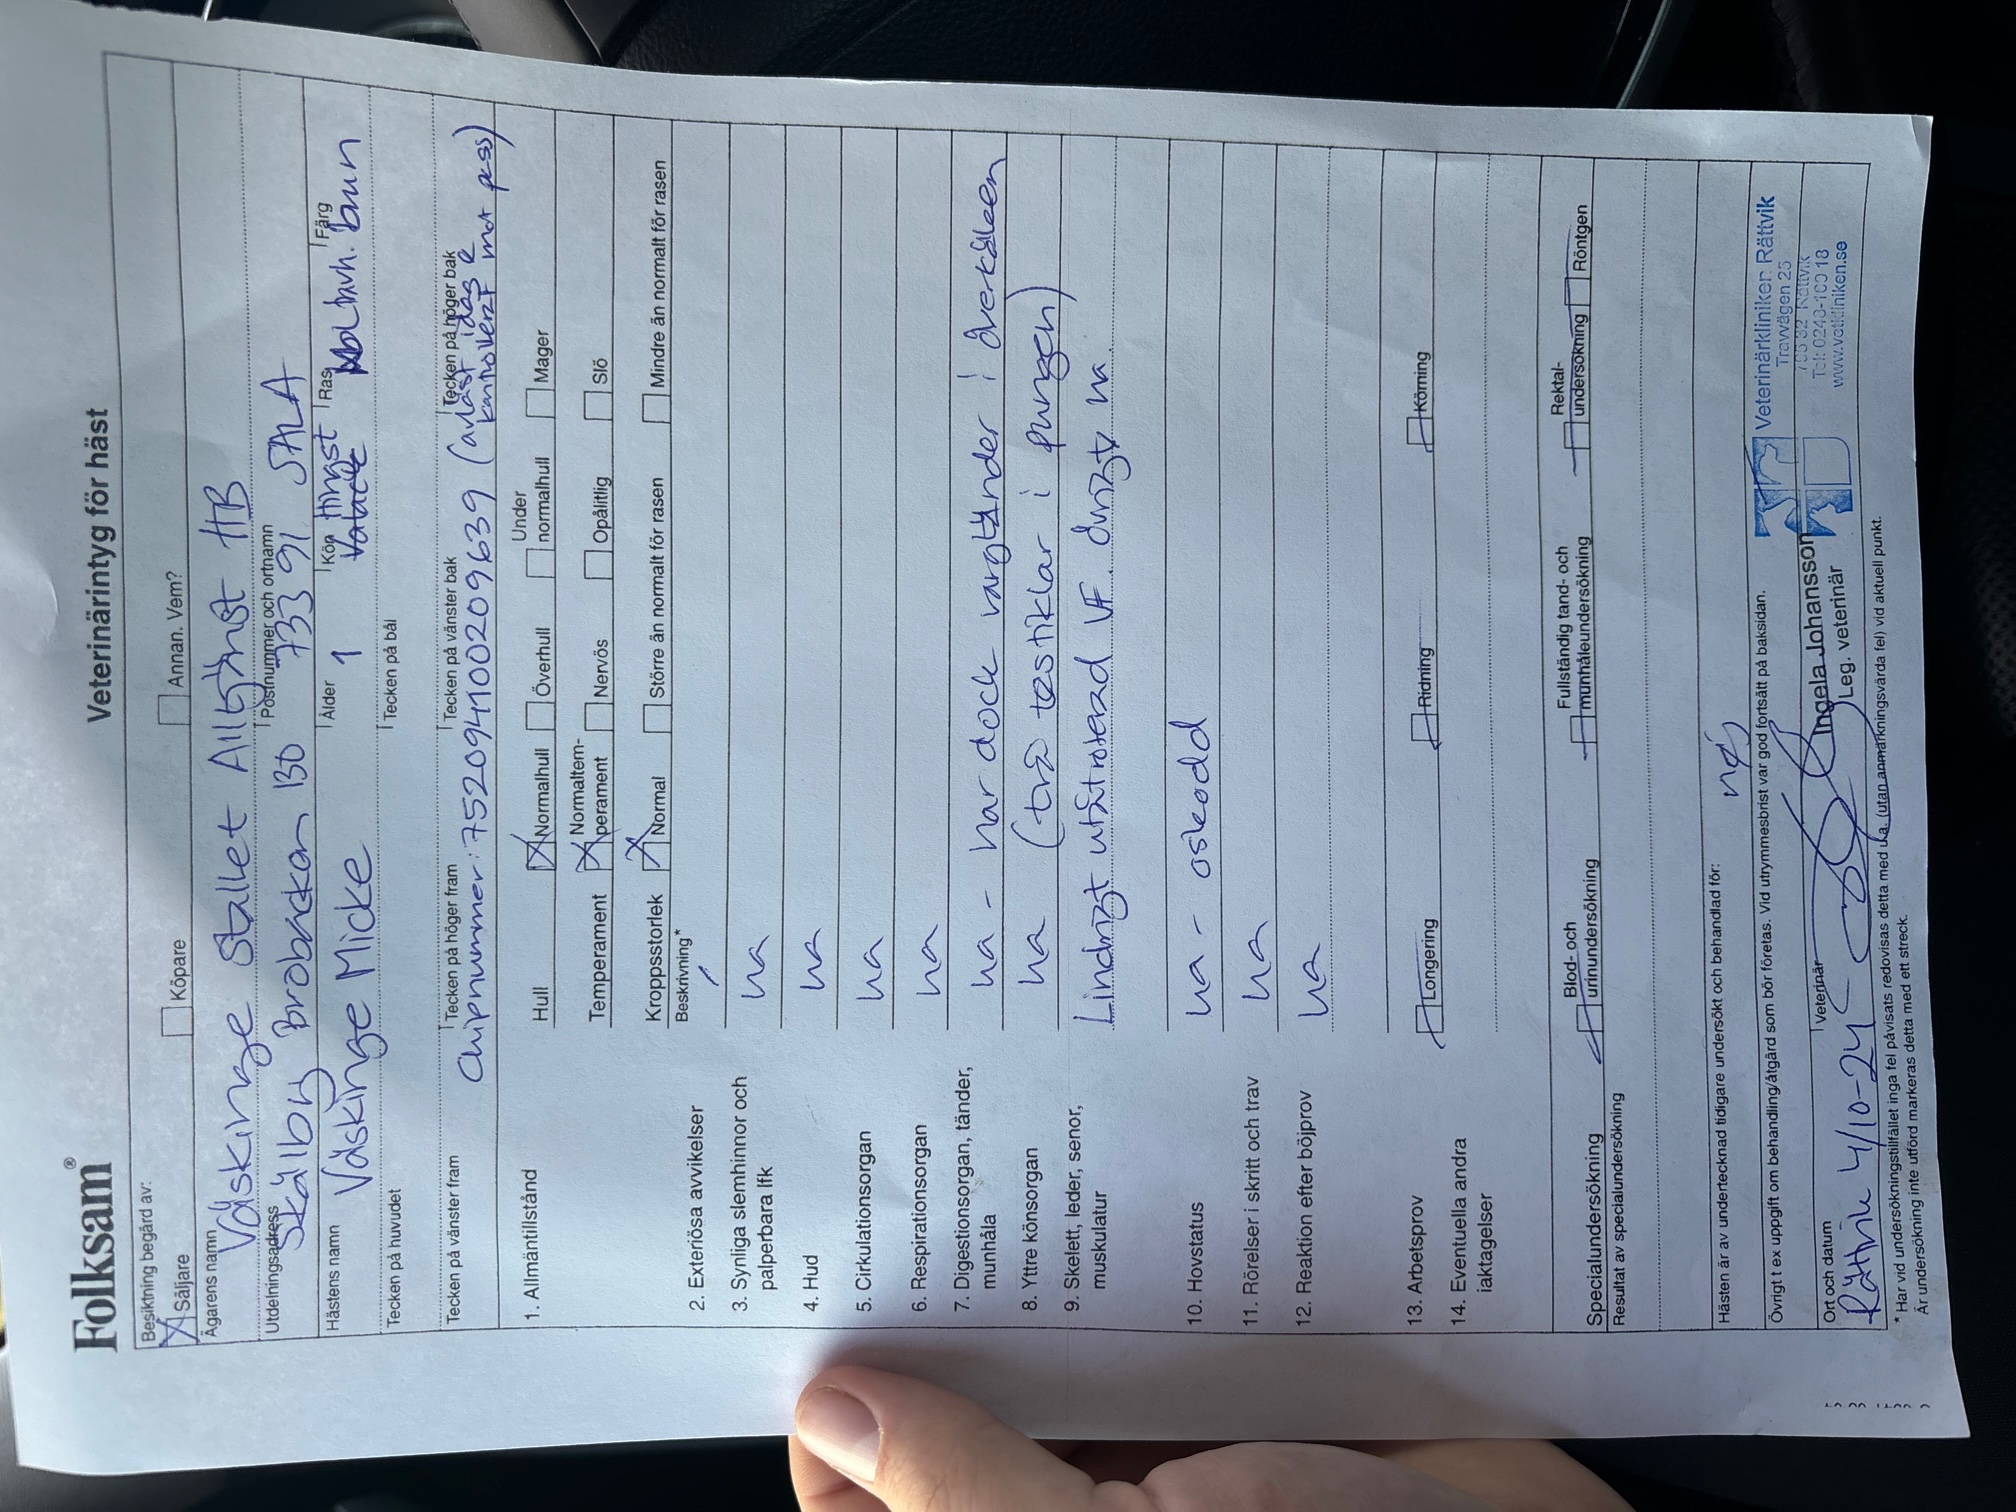 Folksam®
Veterinärintyg för häst
Besiktning begärd av:
X Säljare Köpare Annan. Vem?
Ägarens namn
Väskinge Stallet Alltjänst HB
Utdelningsadress Postnummer och ortnamn
Skälby Brobackan 130 733 91 SALA
Hästens namn Ålder Kön Ras Färg
Väskinge Micke 1 Hingst Valack varmbl. travh. brun
Tecken på huvudet Tecken på bål
Tecken på vänster fram Tecken på höger fram Tecken på vänster bak Tecken på höger bak
Chipnummer: 752094100209639 (avläst idag & kontrollerat mot pass)
1. Allmäntillstånd Hull X Normalhull Överhull Under normalhull Mager
Temperament X Normaltemperament Nervös Opålitlig Slö
Kroppsstorlek X Normal Större än normalt för rasen Mindre än normalt för rasen
Beskrivning*
2. Exteriösa avvikelser /
3. Synliga slemhinnor och palperbara lfk ua
4. Hud ua
5. Cirkulationsorgan ua
6. Respirationsorgan ua
7. Digestionsorgan, tänder, munhåla ua - har dock vargtänder i överkäken
8. Yttre könsorgan ua (två testiklar i pungen)
9. Skelett, leder, senor, muskulatur Lindrigt utåtroterad VF. övrigt ua.
10. Hovstatus ua - oskodd
11. Rörelser i skritt och trav ua
12. Reaktion efter böjprov ua
13. Arbetsprov Longering Ridning Körning
14. Eventuella andra iakttagelser
Specialundersökning Blod- och urinundersökning Fullständig tand- och munhåleundersökning Rektalundersökning Röntgen
Resultat av specialundersökning
Hästen är av undertecknad tidigare undersökt och behandlad för: nej
Övrigt t ex uppgift om behandling/åtgärd som bör företas. Vid utrymmesbrist var god fortsätt på baksidan.
Ort och datum Veterinär
Rättvik 4/10-24
Ingela Johansson
Leg. veterinär
Veterinärkliniken Rättvik
Travvägen 25
Rättvik
www.vetkliniken.se
* Har vid undersökningstillfället inga fel påvisats redovisas detta med u.a. (utan anmärkningsvärda fel) vid aktuell punkt.
Är undersökning inte utförd markeras detta med ett streck.